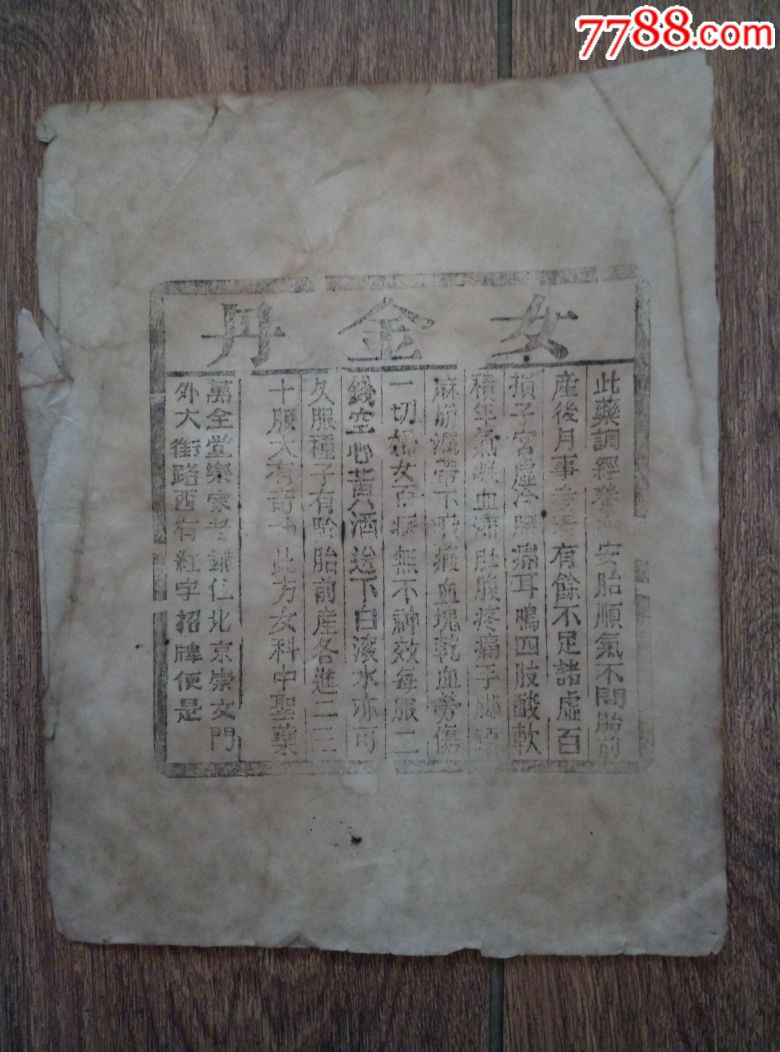 7788.com
女金丹
此藥調經養 安胎順氣不問胎前
產後月事參差有餘不足諸虛百
損子宮虛冷 痛耳鳴四肢酸軟
積年氣凝血滯肚腹疼痛手腳
麻 漏帶下 癥血塊乾血勞傷
一切婦女百病無不神效每服二
錢空心黃酒送下白滾水亦可
久服種子有驗胎前產各進二三
十服大有奇 此方女科中聖藥
萬全堂樂家老鋪住北京崇文門
外大街路西有紅字招牌便是